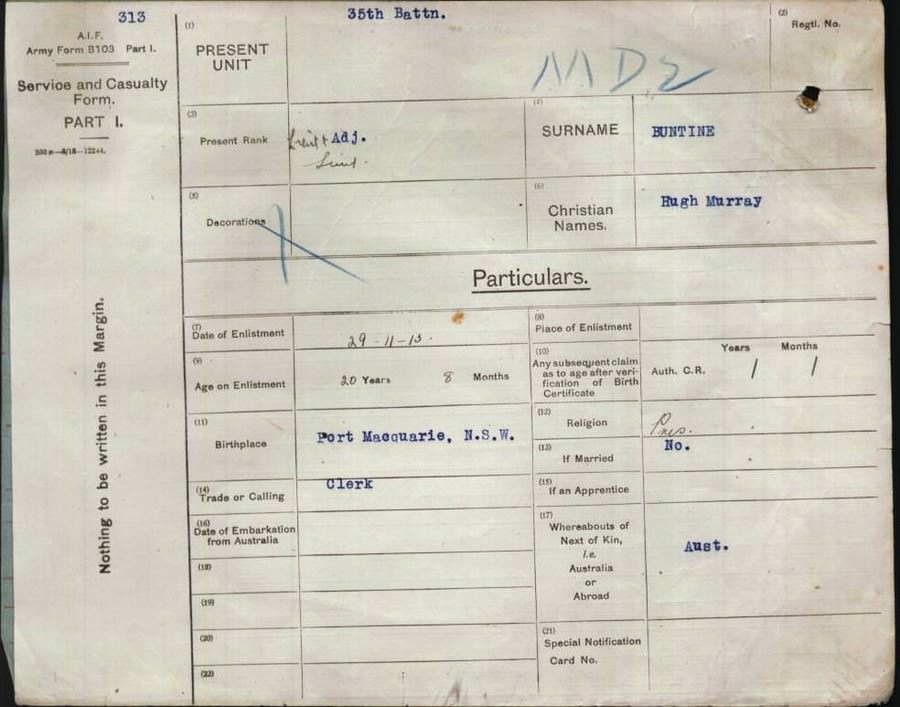 313
A.I.F.
Army Form B103 Part I.
Service and Casualty
Form.
PART I.
200 m—8/18—12244.
Nothing to be written in this Margin.
(1)
PRESENT
UNIT
35th Battn.
(2)
Regtl. No.
(3)
Present Rank
Lieut & Adj.
Lieut.
(4)
SURNAME
BUNTINE
(5)
Decorations
(6)
Christian
Names.
Hugh Murray
Particulars.
(7)
Date of Enlistment
29-11-15.
(8)
Place of Enlistment
(9)
Age on Enlistment
20 Years 8 Months
(10)
Any subsequent claim
as to age after veri-
fication of Birth
Certificate
Years Months
Auth. C.R. / /
(11)
Birthplace
Port Macquarie, N.S.W.
(12)
Religion
Pres.
(13)
If Married
No.
(14)
Trade or Calling
Clerk
(15)
If an Apprentice
(16)
Date of Embarkation
from Australia
(17)
Whereabouts of
Next of Kin,
i.e.
Australia
or
Abroad
Aust.
(18)
(19)
(20)
(21)
Special Notification
Card No.
(22)